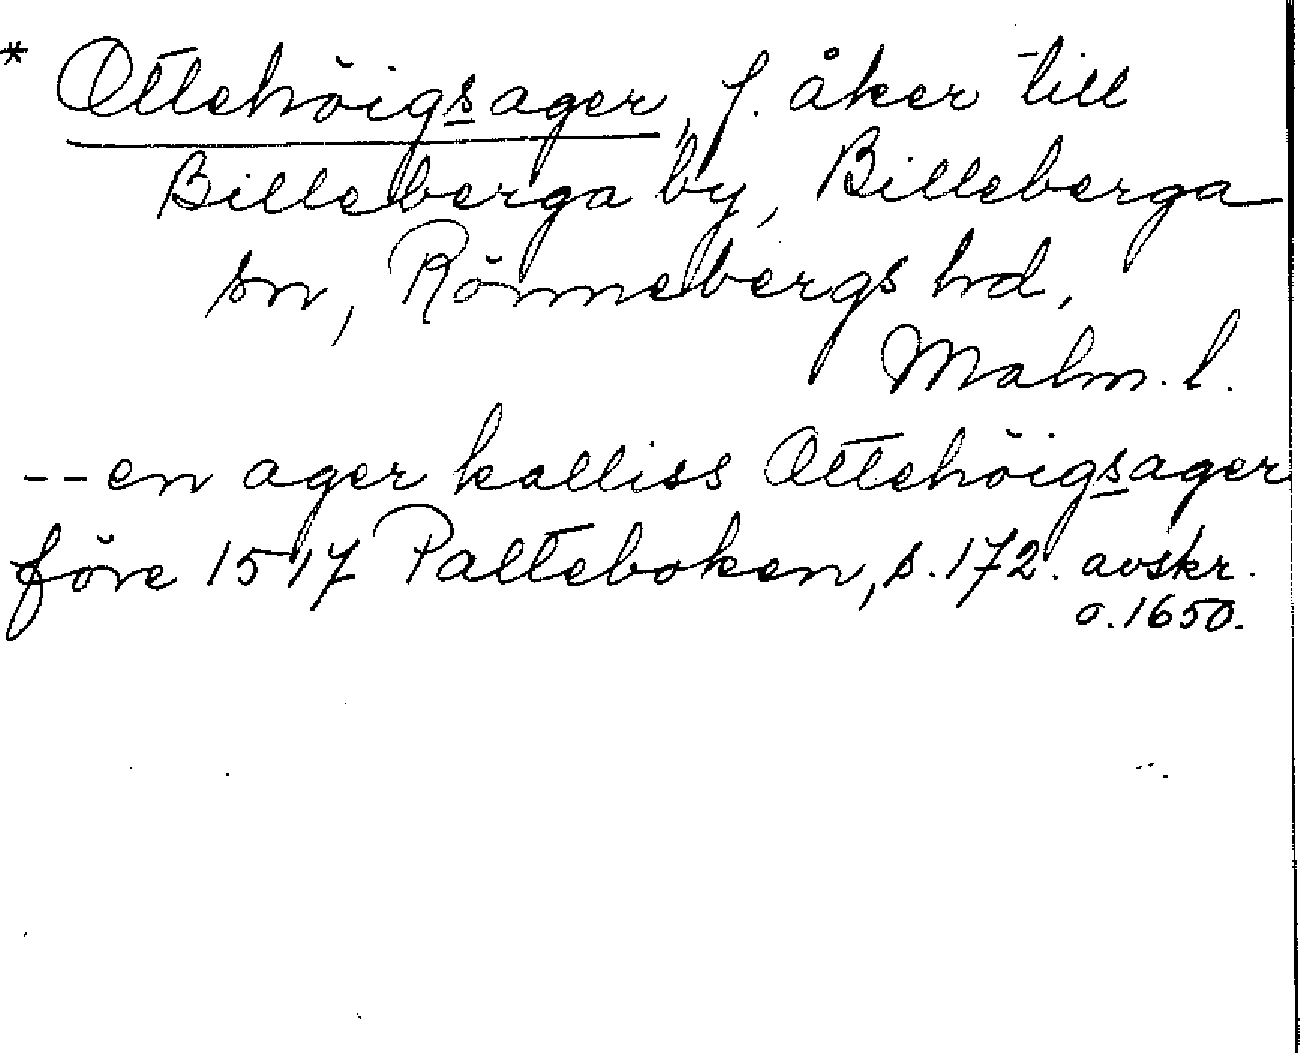 * Ottehöigsager, f. åker till
Billeberga by, Billeberga
sn, Rönnebergs hd,
Malm. l.
-- en ager kalliss Ottehöigsager
före 1517 Palteboken, s. 172. avskr.
o. 1650.